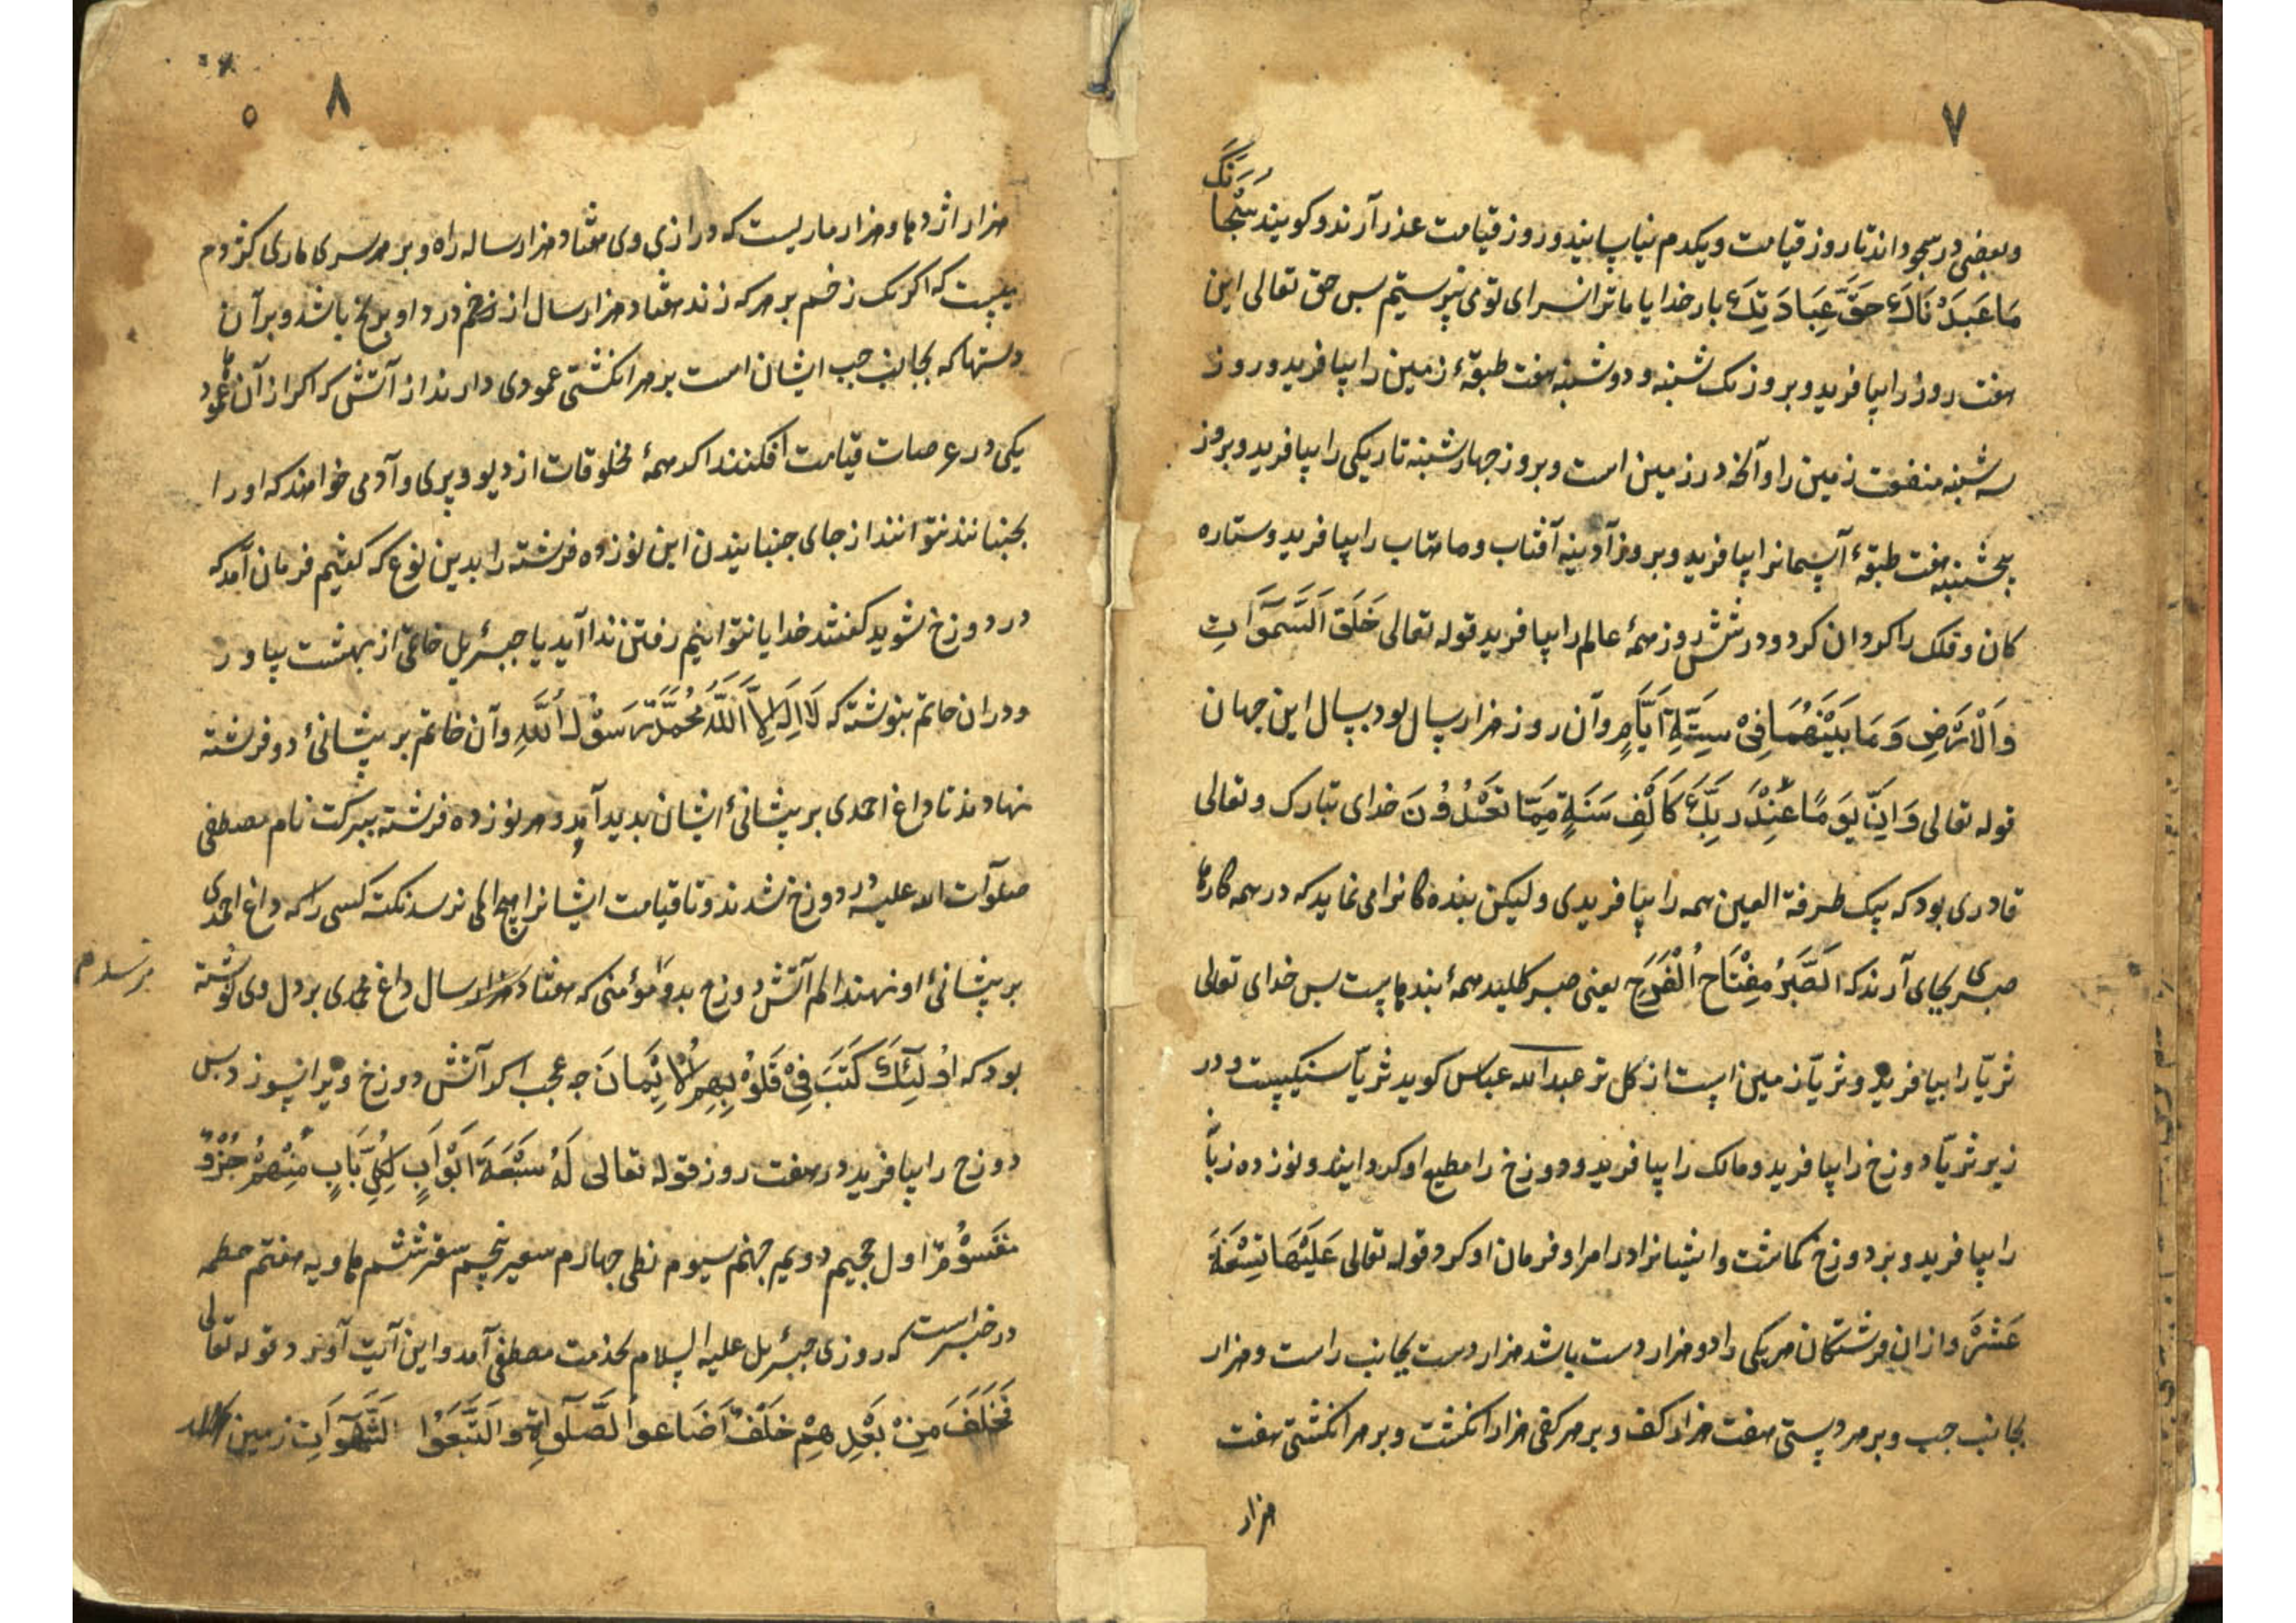 ٧
وبعضی در سجود اند تا روز قیامت ویکدم نیاسایند و روز قیامت عذر آرند و کویند سُبْحَا
نَکَ
مَا عَبَدْنَاكَ حَقَّ عِبَادَتِكَ بار خدایا ما ترا سزای تو می نپرستیم بس حق تعالی این
هفت روز را بیافرید و بروز یک شنبه و دوشنبه هفت طبقهٔ زمین را بیافرید و روز
سه شنبه منفعت زمین را و آنچه در زمین است و بروز چهارشنبه تاریکی را بیافرید و بروز
پنجشنبه هفت طبقهٔ آسمانرا بیافرید و بروز آدینه آفتاب و ماهتاب را بیافرید و ستاره
کان و فلک را کردان کرد و در شش روز همهٔ عالم را بیافرید قوله تعالی خَلَقَ السَّمٰوَاتِ
وَالْاَرْضِ وَمَا بَيْنَهُمَا فِیْ سِتَّةِ اَيَّامٍ و آن روز هزار سال بود بسال این جهان
قوله تعالی وَاِنَّ يَوْمًا عِنْدَ رَبِّكَ كَاَلْفِ سَنَةٍ مِمَّا تَعُدُّوْنَ خدای تبارک و تعالی
قادری بود که بیک طرفة العین همه را بیافریدی ولیکن بنده کانرا می نماید که در همه کارها
صبری بجای آرند که اَلصَّبْرُ مِفْتَاحُ الْفَرَجِ یعنی صبر کلید همهٔ بندهاست بس خدای تعالی
ثریّا را بیافرید و ثریّا زمین است از کل تر عبدالله عباس کوید ثریّا سنکیست و در
زیر ثریّا دوزخ را بیافرید و مالک را بیافرید و دوزخ را مطیع او کردانید و نوزده زبا
را بیافرید و بر دوزخ کماشت و ایشانرا در امر او فرمان او کرد قوله تعالی عَلَيْهَا تِسْعَةَ
عَشَرَ و از ان فرشتکان هریکی را دو هزار دست باشد هزار دست بجانب راست و هزار
بجانب چپ و بر هر دستی هفت هزار کف و بر هر کفی هزار انکشت و بر هر انکشتی هفت
هزار
٨
٥
هزار اژدها و هزار ماریست که درازی وی هفتاد هزار ساله راه و بر هر سری ماری کژدم
یست که اکر یک زخم بر هر که زند هفتاد هزار سال از زخم درد او برنج باشد و بر آن
دستها که بجانب چپ ایشان است بر هر انکشتی عمودی دارند از آتش که اکر از آن عمودها
یکی در عرصات قیامت افکنند اکر همهٔ مخلوقات از دیو و پری و آدمی خواهند که او را
بجنبانند نتوانند از جای جنبانیدن این نوزده فرشته را بدین نوع که کفتیم فرمان آمد که
در دوزخ شوید کفتند خدایا نتوانیم رفتن ندا آید یا جبرئیل خاتمی از بهشت بیاور
و دران خاتم بنوشته که لَا اِلٰهَ اِلَّا اللّٰهُ مُحَمَّدٌ رَسُوْلُ اللّٰهِ و آن خاتم بر پیشانیٔ دو فرشته
نهادند تا داغ احمدی بر پیشانیٔ ایشان بدید آمد و هر نوزده فرشته ببرکت نام مصطفی
صلوآت الله علیه در دوزخ شدند و تا قیامت ایشانرا هیچ المی نرسد نکته کسی را که داغ احمدی
بر پیشانیٔ او نهند الم آتش دوزخ بدو مؤمنی که هفتاد هزار سال داغ محمدی بر دل وی نوشته
نرسد هم
بود که اُولٰئِكَ كَتَبَ فِیْ قُلُوْبِهِمُ الْاِيْمَانَ چه عجب اکر آتش دوزخ ویرا نسوزد بس
دوزخ را بیافرید در هفت روز قوله تعالی لَهَا سَبْعَةُ اَبْوَابٍ لِكُلِّ بَابٍ مِنْهُمْ جُزْءٌ
مَقْسُوْمٌ اول جحیم دویم جهنم سیوم نطی چهارم سعیر پنجم سقر ششم هاویه هفتم حطمه
در خبر است که روزی جبرئیل علیه السلام بخدمت مصطفی آمد و این آیت آورد قوله تعالی
فَخَلَفَ مِنْ بَعْدِهِمْ خَلْفٌ اَضَاعُوا الصَّلٰوةَ وَاتَّبَعُوا الشَّهَوَاتِ زمین